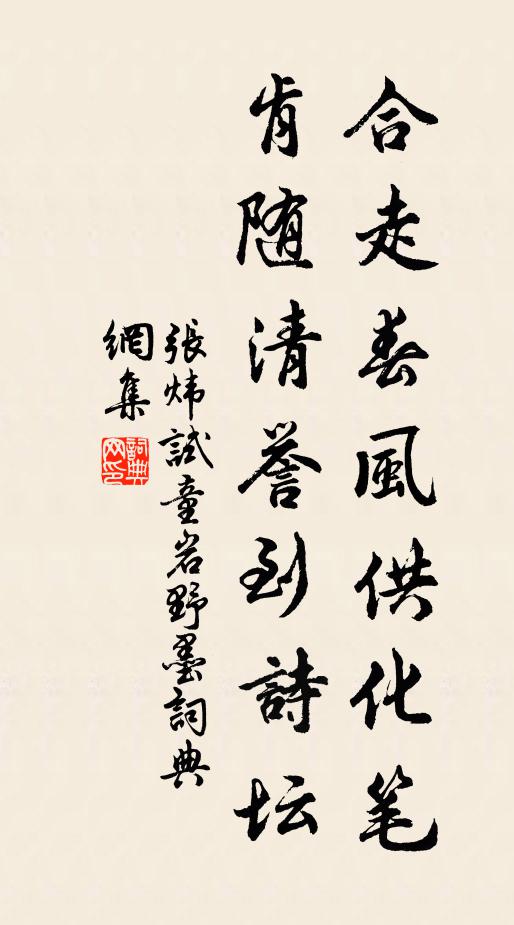 合走春風供化笔
肯随清誉到詩坛
張炜試童岩野墨詞典
網集
詞典网印